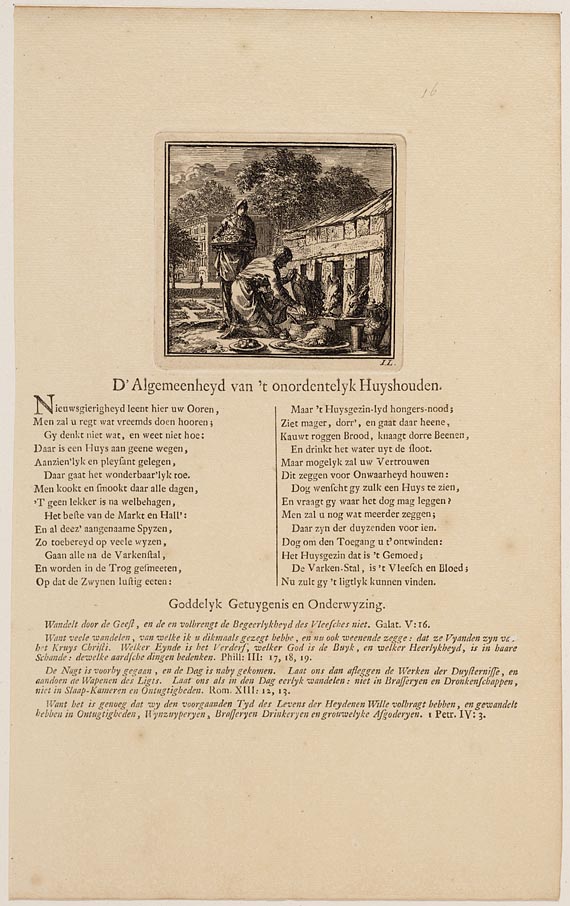 16
I L.
D' Algemeenheyd van 't onordentelyk Huyshouden.
Nieuwsgierigheyd leent hier uw Ooren,
Men zal u regt wat vreemds doen hooren;
Gy denkt niet wat, en weet niet hoe:
Daar is een Huys aan geene wegen,
Aanzien'lyk en pleysant gelegen,
Daar gaat het wonderbaar'lyk toe.
Men kookt en smookt daar alle dagen,
'T geen lekker is na welbehagen,
Het beste van de Markt en Hall':
En al deez' aangenaame Spyzen,
Zo toebereyd op veele wyzen,
Gaan alle na de Varkenstal,
En worden in de Trog gesmeeten,
Op dat de Zwynen lustig eeten:
Maar 't Huysgezin lyd hongers-nood;
Ziet mager, dorr', en gaat daar heene,
Kauwt roggen Brood, knaagt dorre Beenen,
En drinkt het water uyt de sloot.
Maar mogelyk zal uw Vertrouwen
Dit zeggen voor Onwaarheyd houwen:
Dog wenscht gy zulk een Huys te zien,
En vraagt gy waar het dog mag leggen?
Men zal u nog wat meerder zeggen;
Daar zyn der duyzenden voor ien.
Dog om den Toegang u t'ontwinden:
Het Huysgezin dat is 't Gemoed;
De Varken-Stal, is 't Vleesch en Bloed;
Nu zult gy 't ligtlyk kunnen vinden.
Goddelyk Getuygenis en Onderwyzing.
Wandelt door de Geest, en de en volbrengt de Begeerlykheyd des Vleesches niet. Galat. V: 16.
Want veele wandelen, van welke ik u dikmaals gezegt hebbe, en nu ook weenende zegge: dat ze Vyanden zyn van
het Kruys Christi. Welker Eynde is het Verderf, welker God is de Buyk, en welker Heerlykheyd, is in haare
Schande: dewelke aardsche dingen bedenken. Phill: III: 17, 18, 19.
De Nagt is voorby gegaan, en de Dag is naby gekomen. Laat ons dan afleggen de Werken der Duysternisse, en
aandoen de Wapenen des Ligts. Laat ons als in den Dag eerlyk wandelen: niet in Brasseryen en Dronkenschappen,
niet in Slaap-Kameren en Ontugtigheden. Rom. XIII: 12, 13.
Want het is genoeg dat wy den voorgaanden Tyd des Levens der Heydenen Wille volbragt hebben, en gewandelt
hebben in Ontugtigheden, Wynzuyperyen, Brasseryen Drinkeryen en grouwelyke Afgoderyen. 1 Petr. IV: 3.